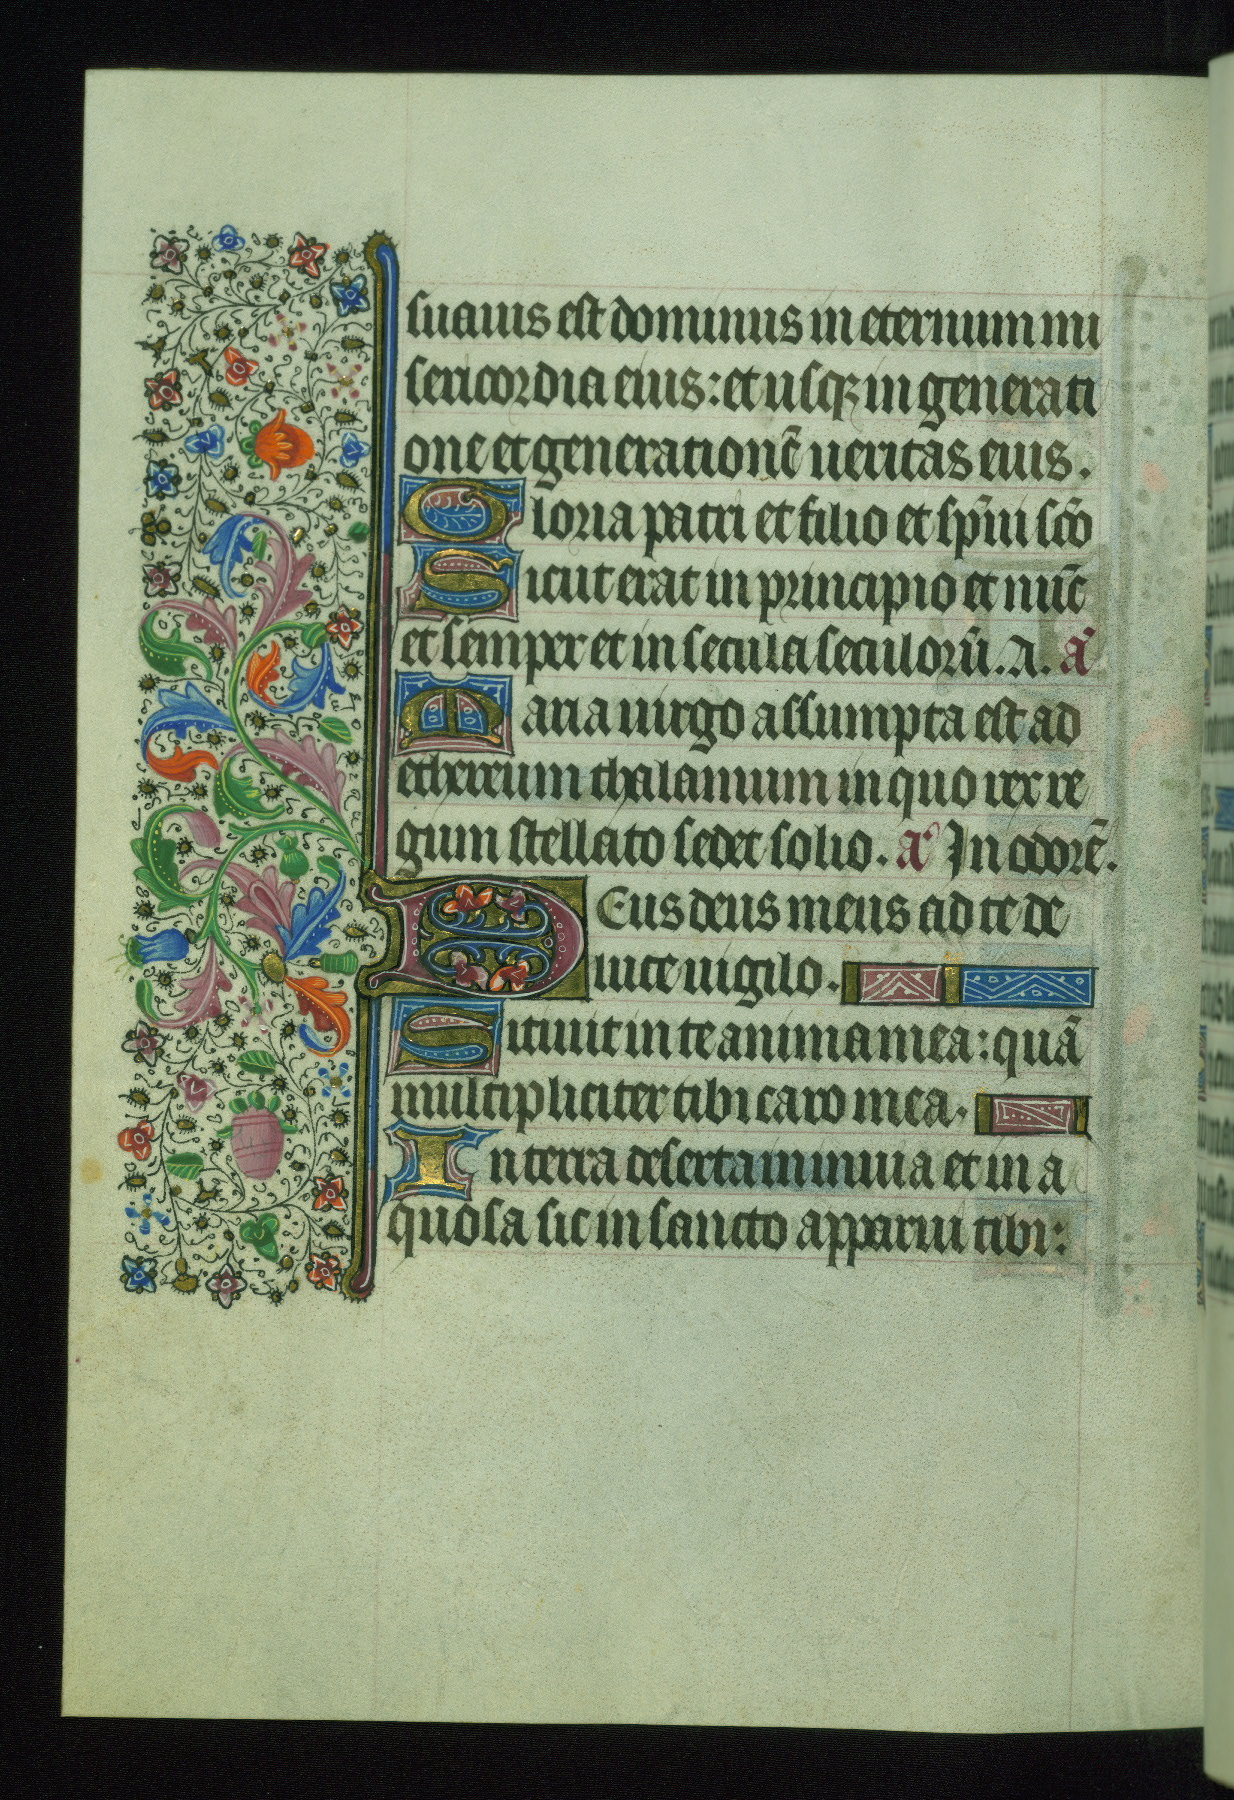 suauis est dominus in eternum mi
sericordia eius: et usqꝫ in generati
one et generationē ueritas eius.
Gloria patri et filio et sp̄iui sc̄o
Sicut erat in principio et nūc
et semper et in secula seculorū. A. a
Maria uirgo assumpta est ad
ethereum thalamum in quo rex re
gum stellato sedet solio. a In odorē.
DEus deus meus ad te de
luce uigilo.
Sitiuit in te anima mea: quā
multipliciter tibi caro mea.
In terra deserta inuia et in a
quosa sic in sancto apparui tibi: